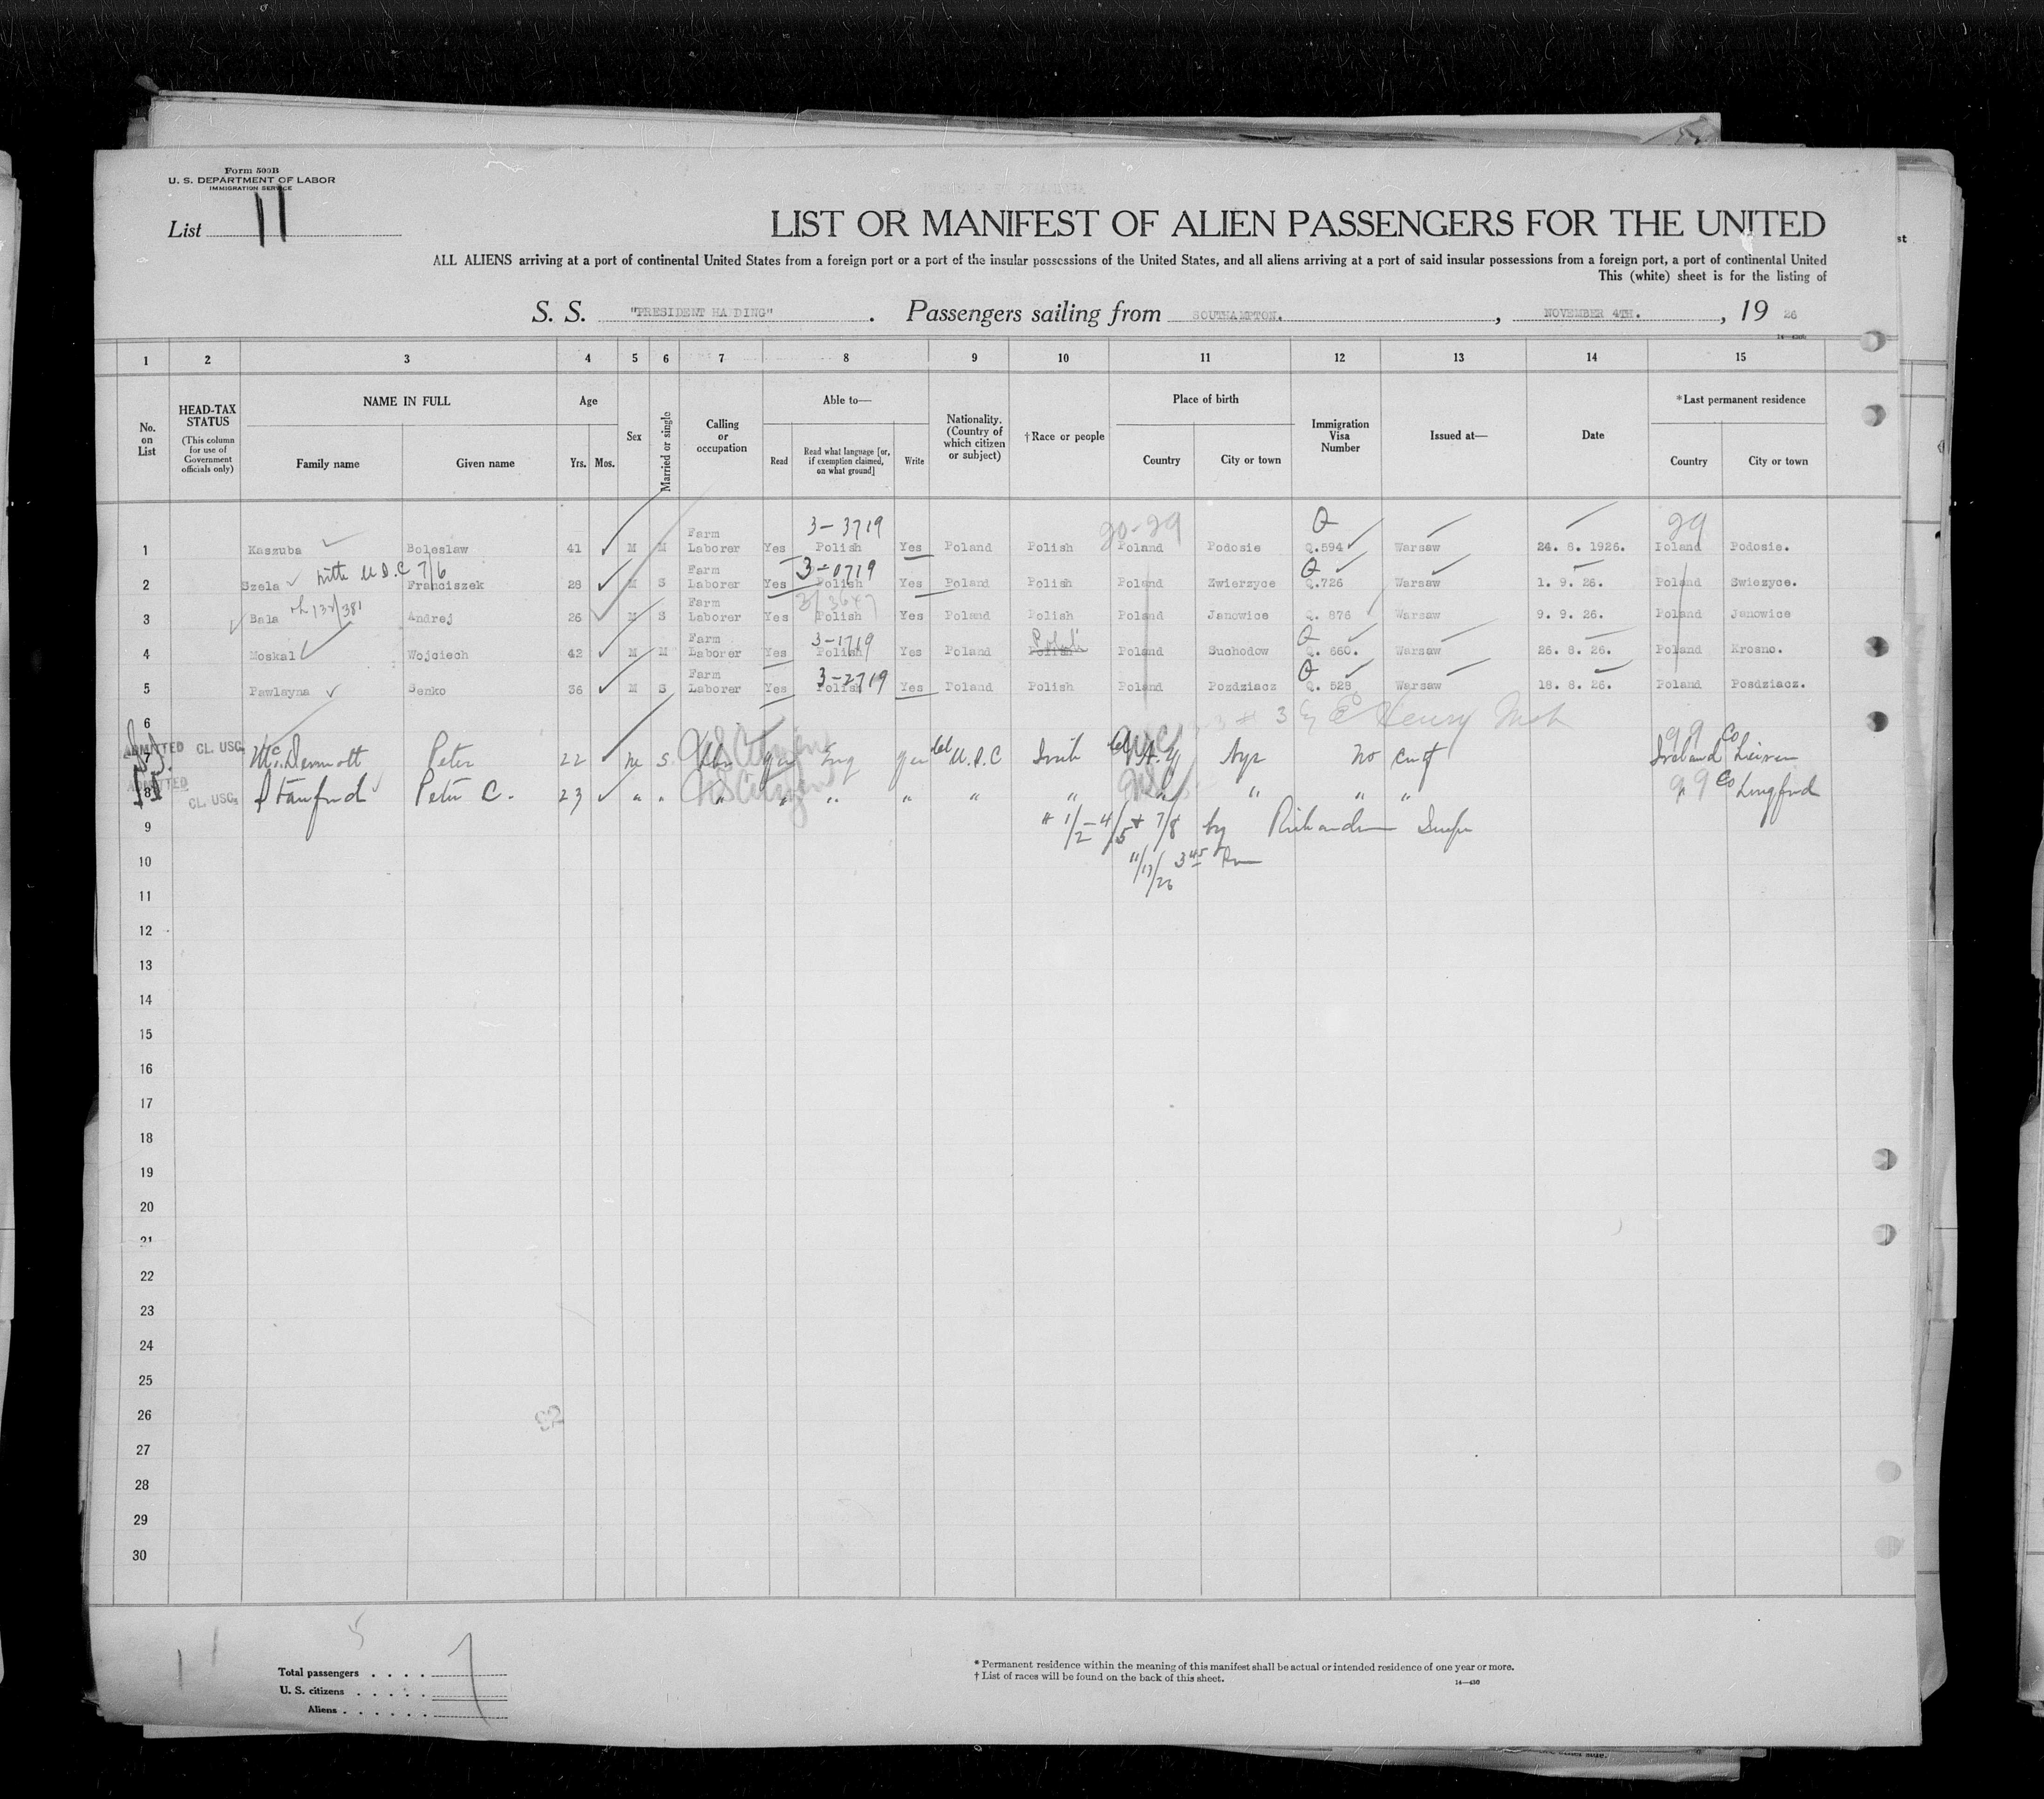 Form 500B
U. S. DEPARTMENT OF LABOR
IMMIGRATION SERVICE
List 11
LIST OR MANIFEST OF ALIEN PASSENGERS FOR THE UNITED
ALL ALIENS arriving at a port of continental United States from a foreign port or a port of the insular possessions of the United States, and all aliens arriving at a port of said insular possessions from a foreign port, a port of continental United
This (white) sheet is for the listing of
S. S. "PRESIDENT HA DING". Passengers sailing from SOUTHAMPTON. , NOVEMBER 4TH. , 19 26
1 2 3 4 5 6 7 8 9 10 11 12 13 14 15
No. on List
HEAD-TAX STATUS (This column for use of Government officials only)
NAME IN FULL
Family name Given name
Age
Yrs. Mos.
Sex
Married or single
Calling or occupation
Able to—
Read Read what language [or, if exemption claimed, on what ground] Write
Nationality. (Country of which citizen or subject)
†Race or people
Place of birth
Country City or town
Immigration Visa Number
Issued at—
Date
*Last permanent residence
Country City or town
3-3719 20-29 Q 29
1 Kaszuba Boleslaw 41 M M Farm Laborer Yes Polish Yes Poland Polish Poland Podosie Q.594 Warsaw 24. 8. 1926. Poland Podosie.
U.S.C 7/6 3-0719 Q
2 Szela Franciszek 28 M S Farm Laborer Yes Polish Yes Poland Polish Poland Zwierzyce Q.726 Warsaw 1. 9. 26. Poland Swiezyce.
132/381
3 Bala Andrej 26 M S Farm Laborer Yes Polish Yes Poland Polish Poland Janowice Q. 876 Warsaw 9. 9. 26. Poland Janowice
3-1719 Polish Q
4 Moskal Wojciech 42 M M Farm Laborer Yes Polish Yes Poland Polish Poland Suchodow Q. 660. Warsaw 26. 8. 26. Poland Krosno.
3-2719 Q
5 Pawlayna Senko 36 M S Farm Laborer Yes Polish Yes Poland Polish Poland Pozdziacz Q. 528 Warsaw 18. 8. 26. Poland Posdziacz.
6 # 3 Henry
ADMITTED CL. USC. 99
7 McDermott Peter 22 M S US Citizen Yes Eng Yes U.S.C Irish N.Y. Nyc No Cert Ireland Co
ADMITTED CL. USC. 99
8 Stanford Peter C. 23 " " US Citizen " " " " " " " " " Co Longford
9 # 1/2-4/5 + 7/8 by Richardson
10 11/13/26 3 45 Pm
11
12
13
14
15
16
17
18
19
20
21
22
23
24
25
26
27
28
29
30
5
Total passengers . . . . 7
U. S. citizens . . . . .
Aliens . . . . . .
* Permanent residence within the meaning of this manifest shall be actual or intended residence of one year or more.
† List of races will be found on the back of this sheet.
14—430